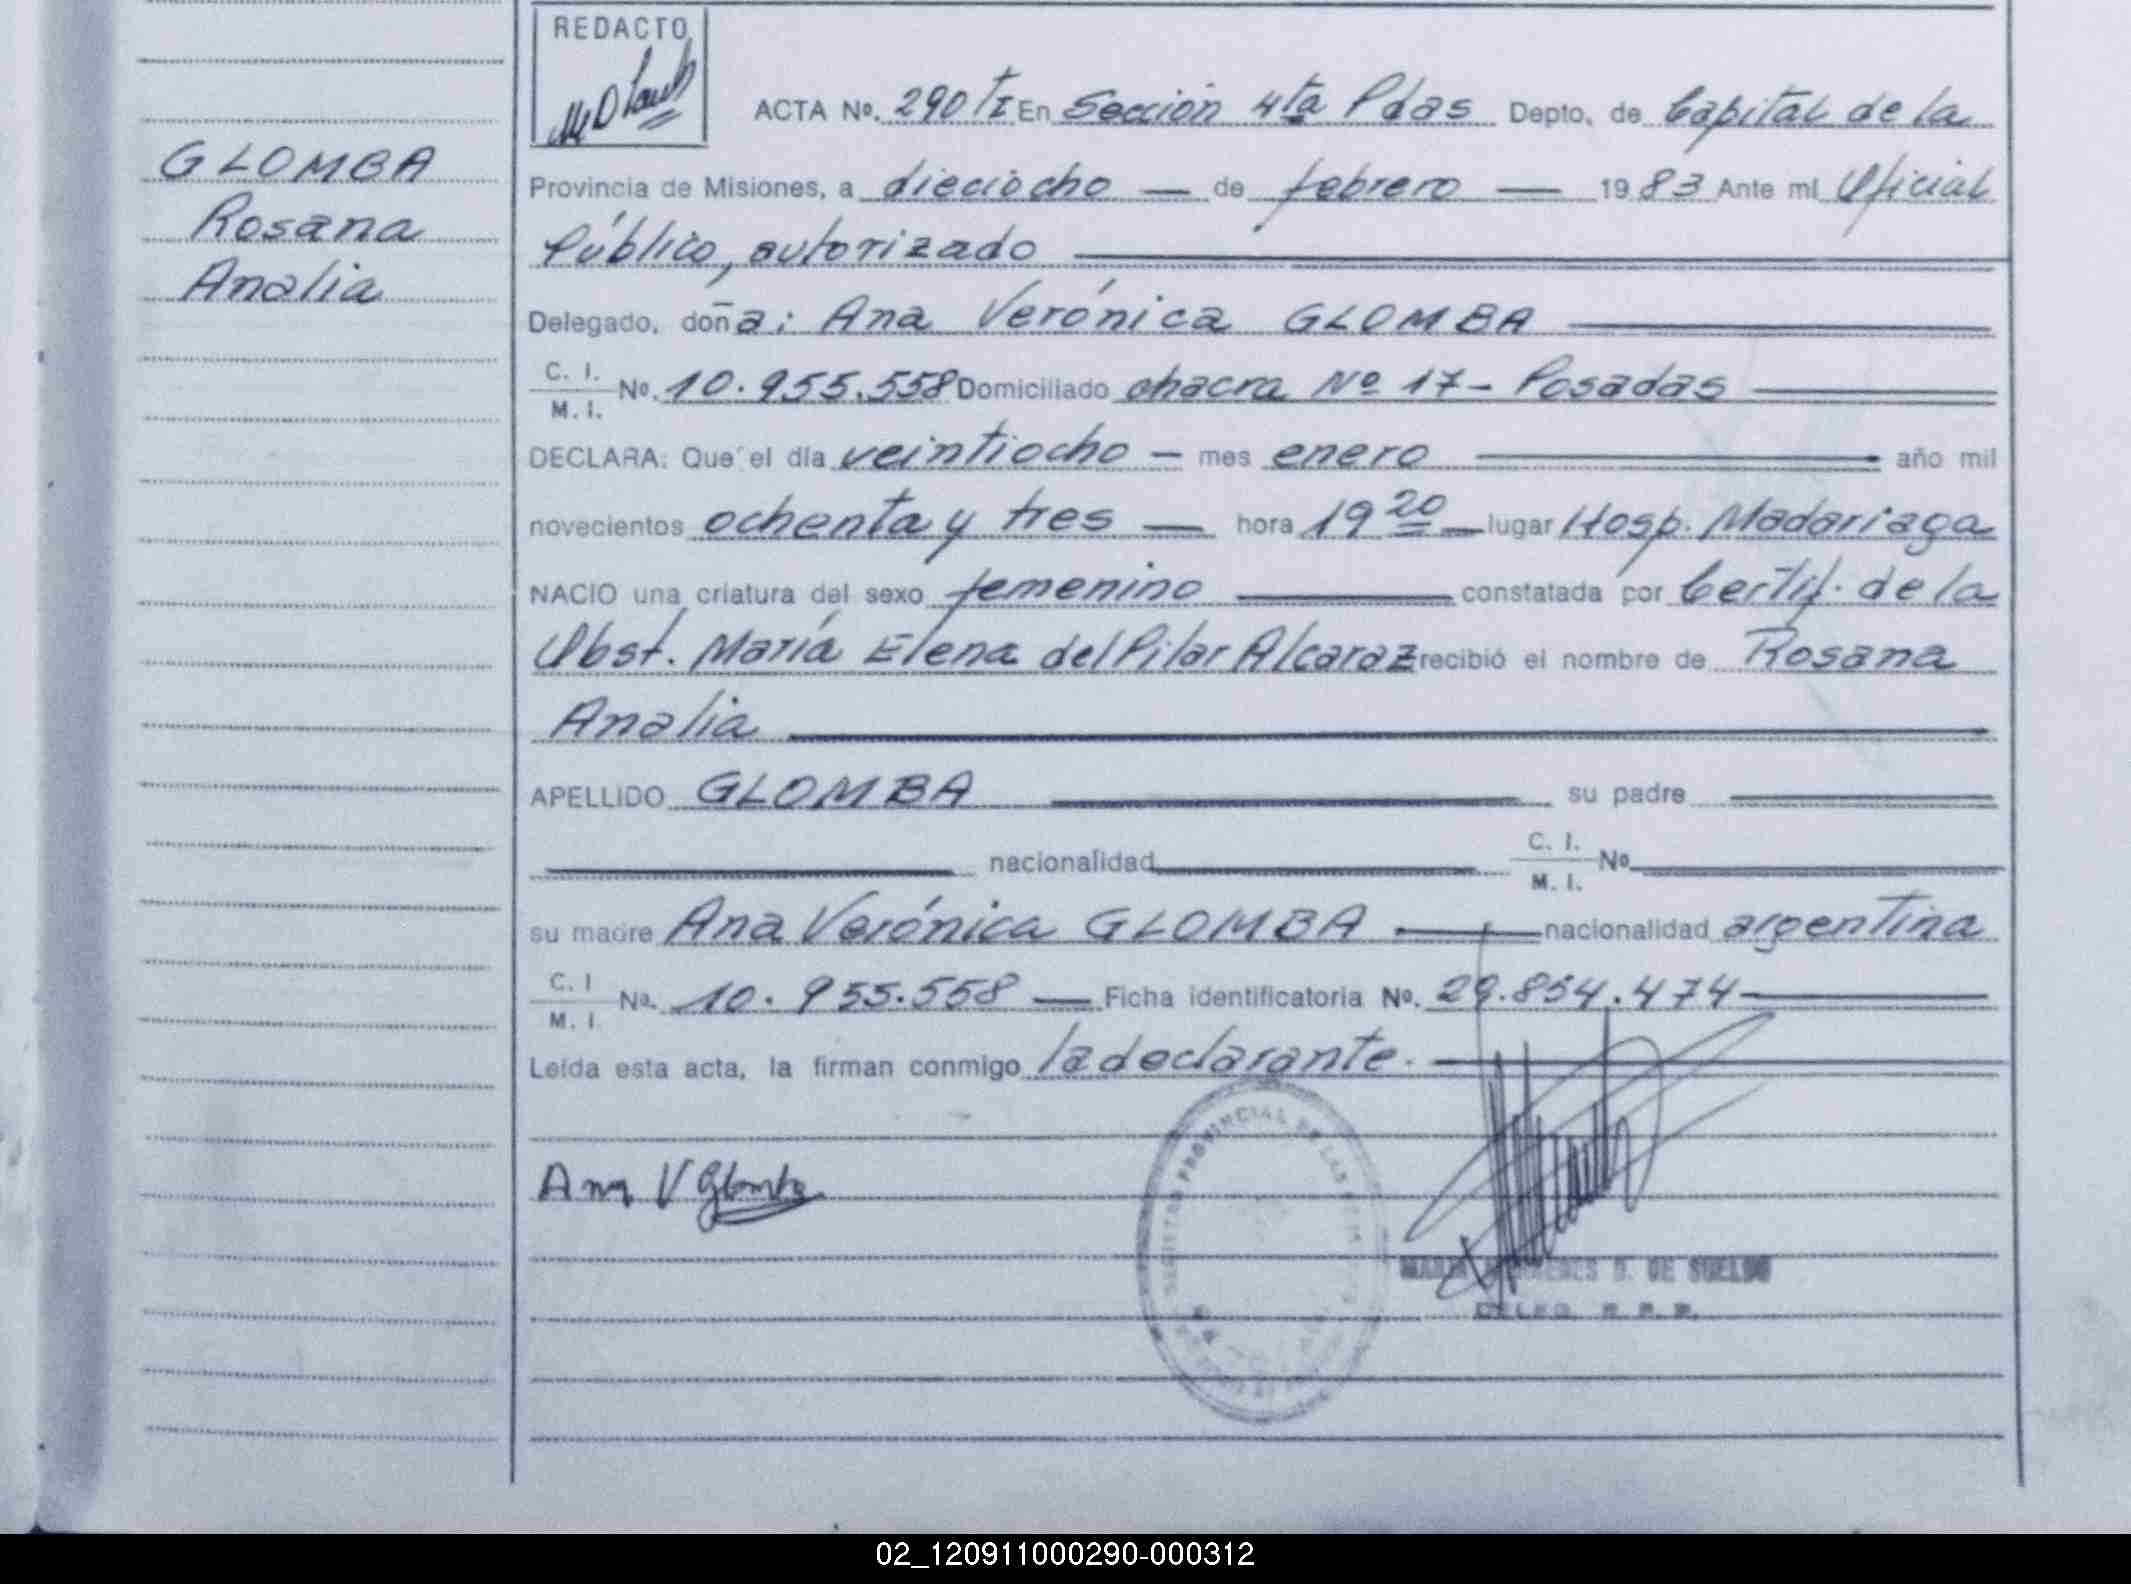 REDACTO
ACTA Nº. 290 TI En Sección 4ta Pdas Depto, de Capital de la
GLOMBA
Provincia de Misiones, a dieciocho — de febrero — 1983 Ante mí Oficial
Rosana
Público, autorizado
Analia
Delegado, doña: Ana Verónica GLOMBA
C. I.
M. I. Nº. 10.955.558 Domiciliado chacra Nº 17- Posadas
DECLARA: Que el día veintiocho — mes enero año mil
novecientos ochenta y tres — hora 19 20 — lugar Hosp. Madariaga
NACIO una criatura del sexo femenino constatada por Certif. de la
Obst. María Elena del Pilar Alcaraz recibió el nombre de Rosana
Analia
APELLIDO GLOMBA su padre
nacionalidad C. I.
M. I. Nº
su madre Ana Verónica GLOMBA nacionalidad argentina
C. I
M. I. Nº. 10.955.558 — Ficha identificatoria Nº. 29.854.474
Leída esta acta, la firman conmigo la declarante.
Ana V Glomba
PROVINCIAL DE LAS
DE SUELDO
DELEG. R. P. P.
02_120911000290-000312